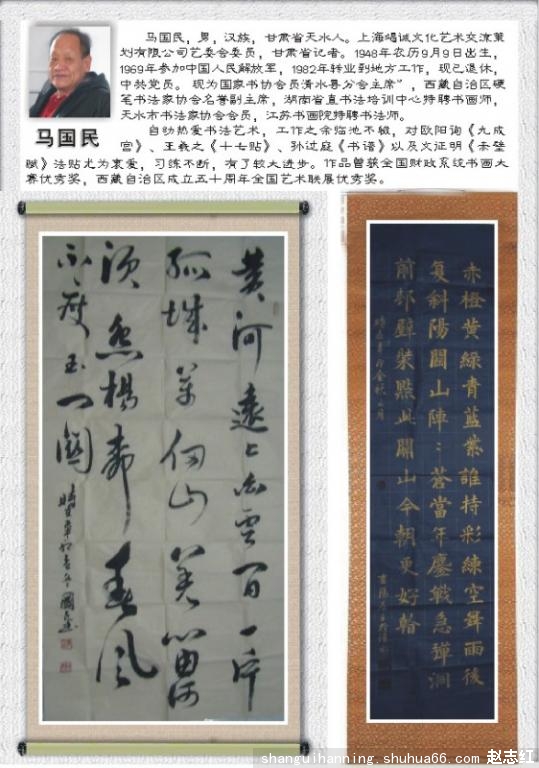 马国民，男，汉族，甘肃省天水人。上海唱诚文化艺术交流策
划有限公司艺委会委员，甘肃省记者。1948年农历9月9日出生，
1969年参加中国人民解放军，1982年转业到地方工作，现已退休，
中共党员。 现为国家书协会员清水县分会主席”，西藏自治区硬
笔书法家协会名誉副主席，湖南省直书法培训中心特聘书画师，
天水市书法家协会会员，江苏书画院特聘书法师。
马国民
自幼热爱书法艺术，工作之余临池不辍，对欧阳询《九成
宫》、王羲之《十七贴》、孙过庭《书谱》以及文征明《赤壁
赋》法贴尤为衷爱，习练不断，有了较大进步。作品曾获全国财政系统书画大
赛优秀奖，西藏自治区成立五十周年全国艺术联展优秀奖。
黄河遠上白雲间一片
孤城萬仞山羌笛何
须怨楊柳春风
不度玉门關
赤橙黄綠青藍紫誰持彩練空舞雨後
復斜陽關山陣〻蒼當年鏖戰急彈洞
前邨壁裝點此關山今朝更好看
shanguihanning.shuhua66.com 赵志红